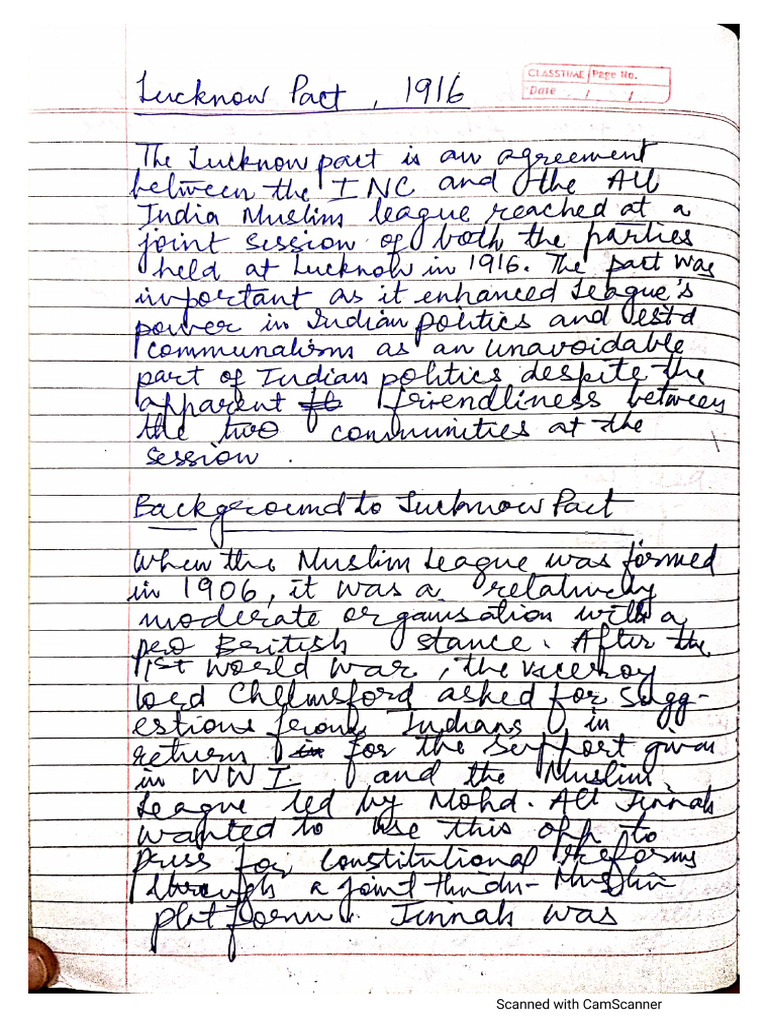 CLASSTIME Page No.
Date / /
Lucknow Pact, 1916
The Lucknow pact is an agreement
between the INC and the All
India Muslim league reached at a
joint session of both the parties
held at Lucknow in 1916. The pact was
important as it enhanced League's
power in Indian politics and estd
communalism as an unavoidable
part of Indian politics despite the
apparent friendliness between
the two communities at the
session.
Background to Lucknow Pact
When the Muslim League was formed
in 1906, it was a relatively
moderate organisation with a
pro British stance. After the
1st world war, the viceroy
lord Chelmsford asked for sugg-
estions from Indians in
return for the support given
in WWI and the Muslim
League led by Mohd. Ali Jinnah
wanted to use this opp. to
press for constitutional reforms
through a joint Hindu-Muslim
platform. Jinnah was
Scanned with CamScanner